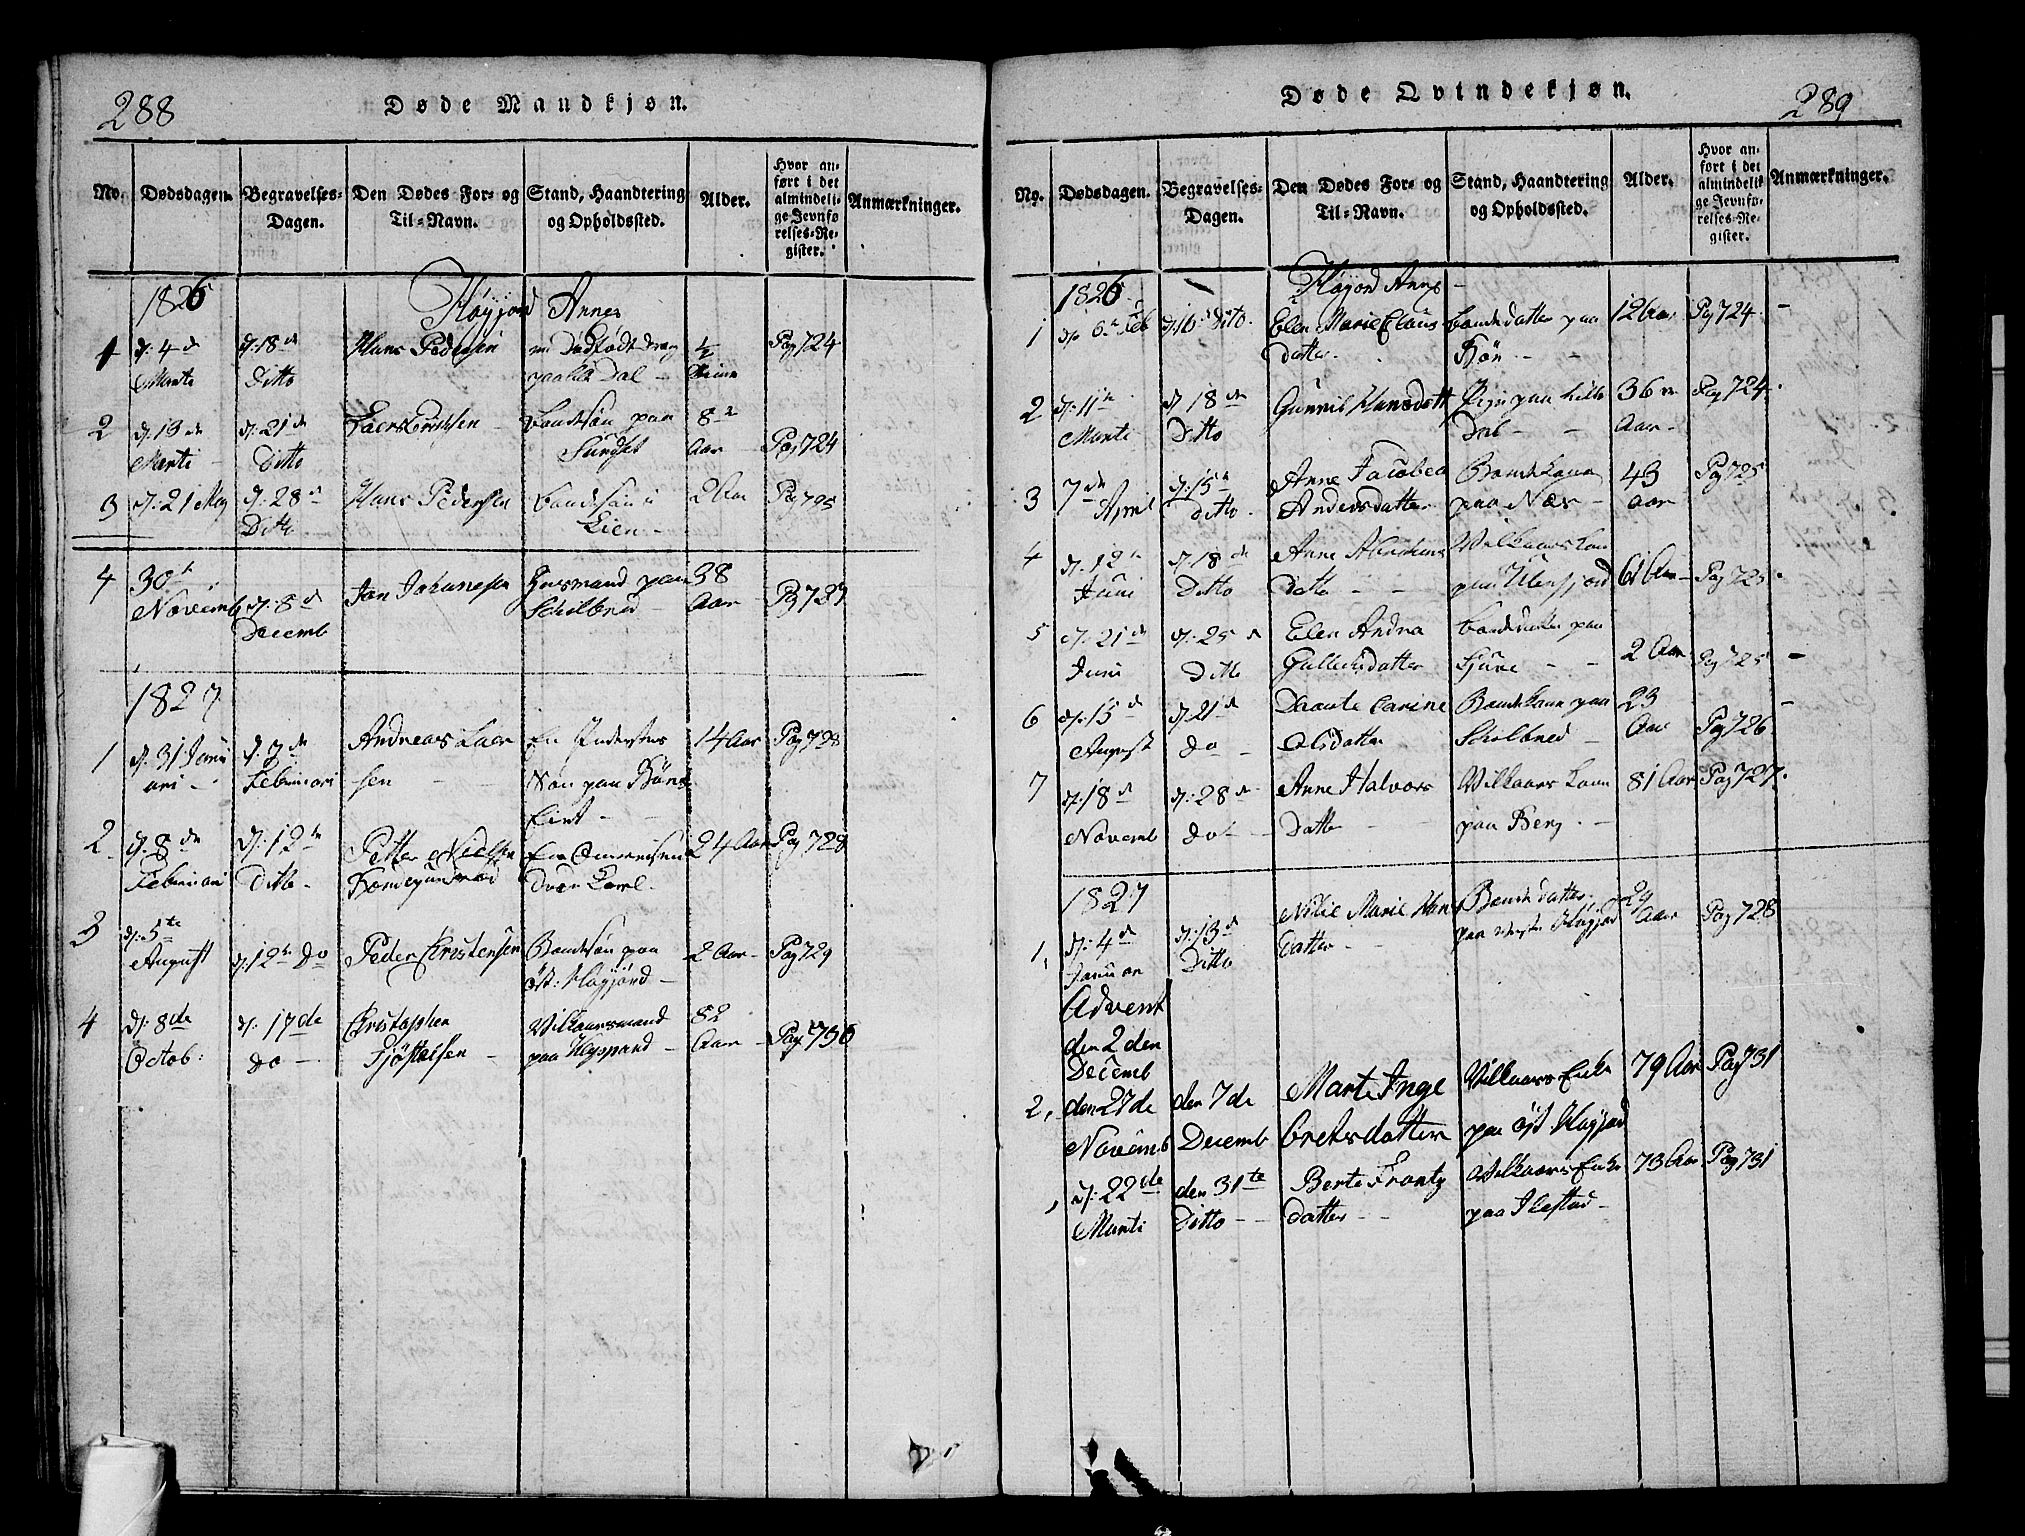 288
Døde Mandkjøn.
No.
Dødsdagen.
Begravelses-
Dagen.
Den Dødes For- og
Til-Navn.
Stand, Haandtering
og Opholdssted.
Alder.
Hvor an-
ført i det
almindeli-
ge Jevnfø-
relses-Re-
gister.
Anmærkninger.
1826
Høyjord Annex
1
d: 4de
Marti
d: 18de
Ditto
Hans Pedersen
Dal
½
Pag 724
2
d: 13de
Marti
d: 21de
Ditto
paa
8
Aar
Pag 724
3
d: 21 May
d: 28de
Ditto
Hans Pedersen
Lien
2 Aar
Pag 725
4
30te
Novemb
d: 8de
Decemb
Jon Johannesen
Huusmand paa
38
Aar
Pag 727
1827
1
d: 31 Janu
ari
d: 7de
Februari
Andreas Laer
sen
14 Aar
Pag 728
2
d: 8de
Februari
d: 12te
Ditto
Petter Nielsen
24 Aar
Pag 728
3
d: 5te
August
d: 12te Do
Peder Christensen
Bondesøn paa
øst: Høyjord
2 Aar
Pag 729
4
d: 8de
Octob:
d: 17de
do
Christopher
Sjøstelsen
Vilkaarsmand
paa
82
Aar
Pag 730
Døde Qvindekjøn.
289
No.
Dødsdagen.
Begravelses-
Dagen.
Den Dødes For- og
Til-Navn.
Stand, Haandtering
og Opholdssted.
Alder.
Hvor an-
ført i det
almindeli-
ge Jevnfø-
relses-Re-
gister.
Anmærkninger.
1826
Høyjord Annex
1
Feb
Ditto
Elen Marie Claus
datter
Bondedatter paa
12 Aar
Pag 724
2
d: 11te
Marti
d: 18de
Ditto
Gunnil Hansdatt
Pige paa
Dal
36
Aar
Pag 724
3
7de
April
d: 15de
Ditto
Anne Jacobea
Andersdatter
Bondekone
paa Næs
43
Aar
Pag 725
4
d: 12te
Juni
d: 18de
Ditto
Anne Abrahams
Datter
Vilkaars kone
paa
61 Aar
Pag 725
5
d: 21de
Juni
d: 25de
Ditto
Elen Andrea
Gulliksdatter
Bondedatter paa
2 Aar
Pag 725
6
d: 15de
August
d: 21de
do
Doronte Carine
Olsdatter
Bondekone paa
23
Aar
Pag 726
7
d: 18de
Novemb
d: 28de
do
Anne Halvors
Datter
Vilkaars kone
paa Berg
81 Aar
Pag 727
1827
1,
d: 4de
Januar
d: 13de
Ditto
Marie Han
datter
Bondedatter
paa Høyjord
29
Aar
Pag 728
Advent
den 2den
Decemb
2,
den 27de
Novemb
den 7de
Decemb
Marte Inge
bretsdatter
Vilkaars Enke
paa Øst Høyjord
79 Aar
Pag 731
d: 22de
Marti
den 31te
Ditto
Berte Frantz
datter
Vilkaars Enke
paa Ilestad
73 Aar
Pag 731